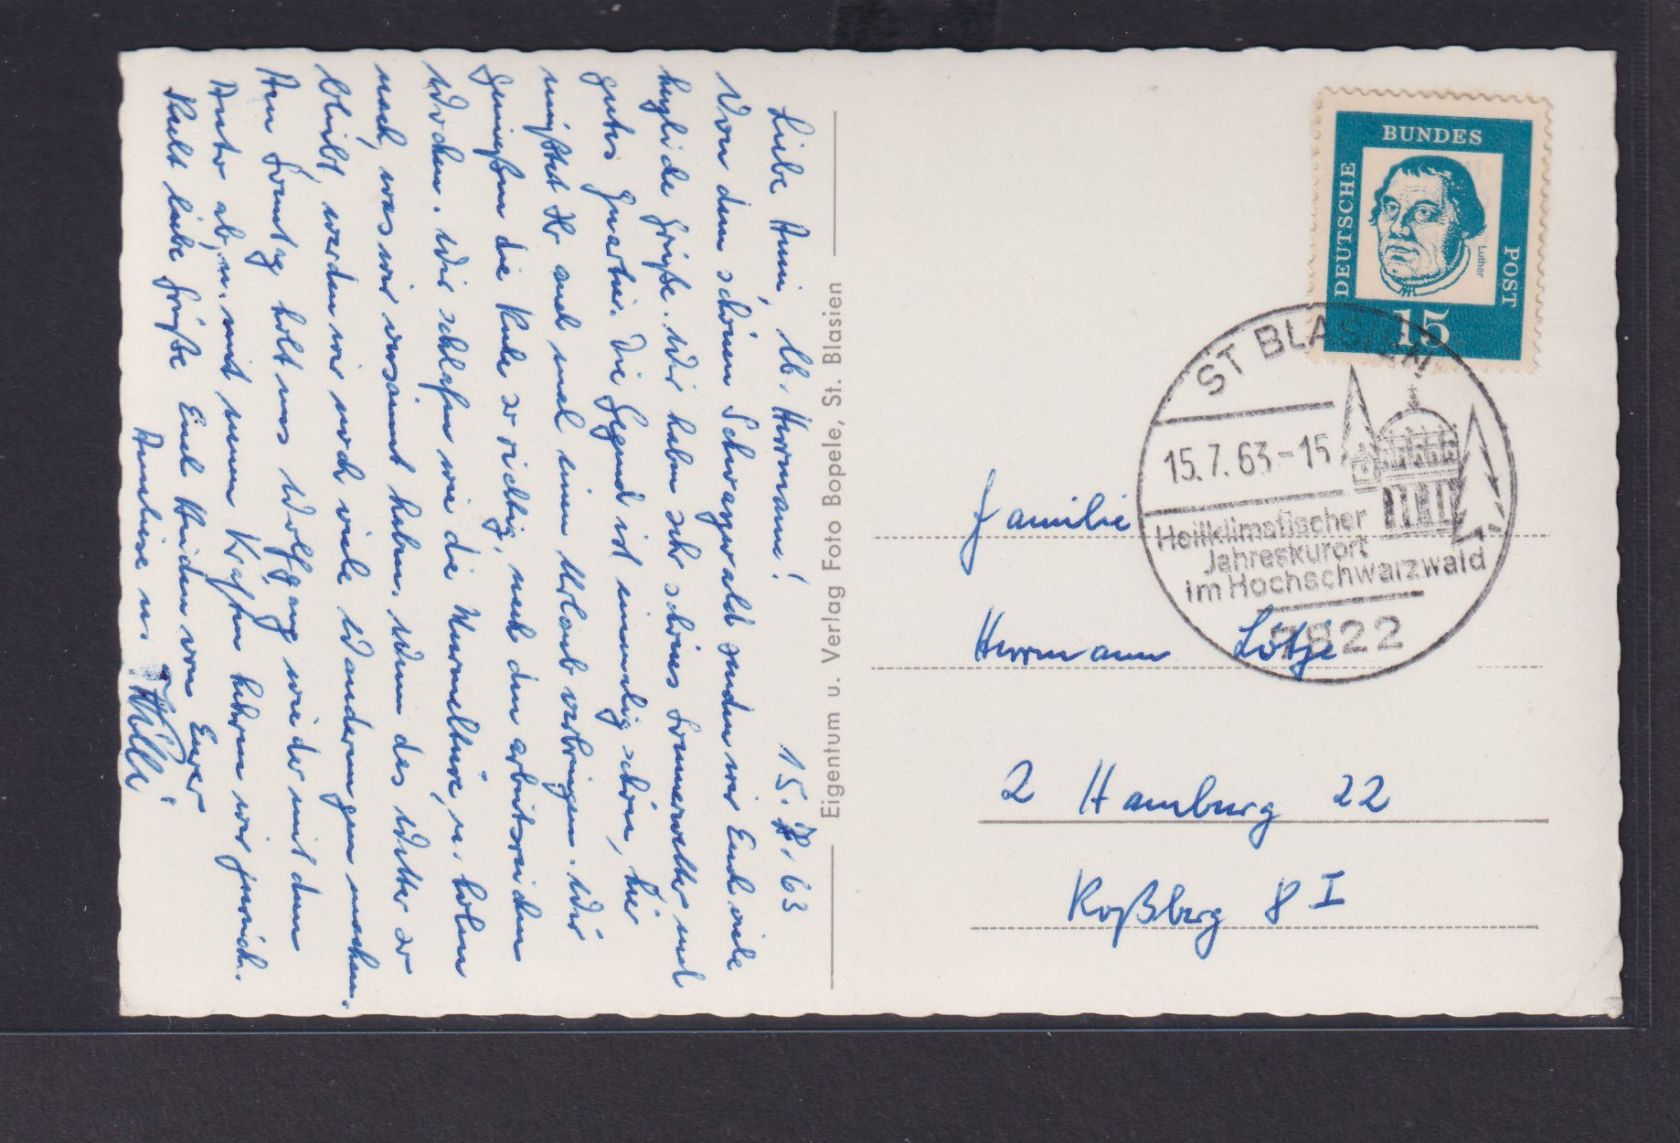 15.7.63
Liebe Anni, lb. Herrmann!
Von dem schönen Schwarzwald senden wir Euch viele
herzliche Grüße. Wir haben sehr schönes Sommerwetter und
gutes Quartier. Die Gegend ist einmalig schön, hier
müßtet Ihr auch mal einen Urlaub verbringen. Wir
genießen die Ruhe so richtig, nach den arbeitsreichen
Wochen. Wir schlafen wie die Murmeltiere, u. holen
nach, was wir versäumt haben. Wenn das Wetter so
bleibt, werden wir noch viele Wanderungen machen.
Am Sonntag holt uns Wolfgang wieder mit dem
Auto ab, u. mit neuen Kräften kehren wir zurück.
Recht liebe Grüße Euch Beiden von Eurer
Anneliese u. Willi
Eigentum u. Verlag Foto Bopele, St. Blasien
DEUTSCHE BUNDES POST
Luther
15
ST BLASIEN
15.7.63-15
Heilklimatischer
Jahreskurort
im Hochschwarzwald
7822
Familie
Herrmann Lötje
2 Hamburg 22
Roßberg 8 I